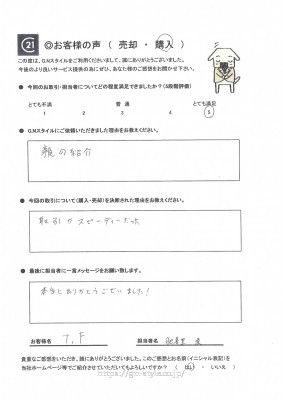 21 ◎お客様の声 （ 売却 ・ 購入 ）
この度は、G.Nスタイルをご利用くださいまして、誠にありがとうございました。
今後のより良いサービス提供の為にぜひ、あなた様のご感想をお聞かせ下さい。
● 今回のお取引・担当者についてどの程度満足できましたか？（5段階評価）
とても不満 普 通 とても満足
1 2 3 4 5
● G.Nスタイルにご依頼いただきました理由をお教えください。
の紹介
● 今回の取引について（購入・売却）を決断された理由をお教えください。
取引がスピーディーだった
● 最後に担当者に一言メッセージをお願い致します。
本当にありがとうございました！
お客様名 T.F 担当者名
貴重なご感想をいただき、誠にありがとうございました。このご感想とお名前（イニシャル表記）を
当社ホームページ等でご紹介させていただいてもよろしいですか？ （ はい ・ いいえ ）